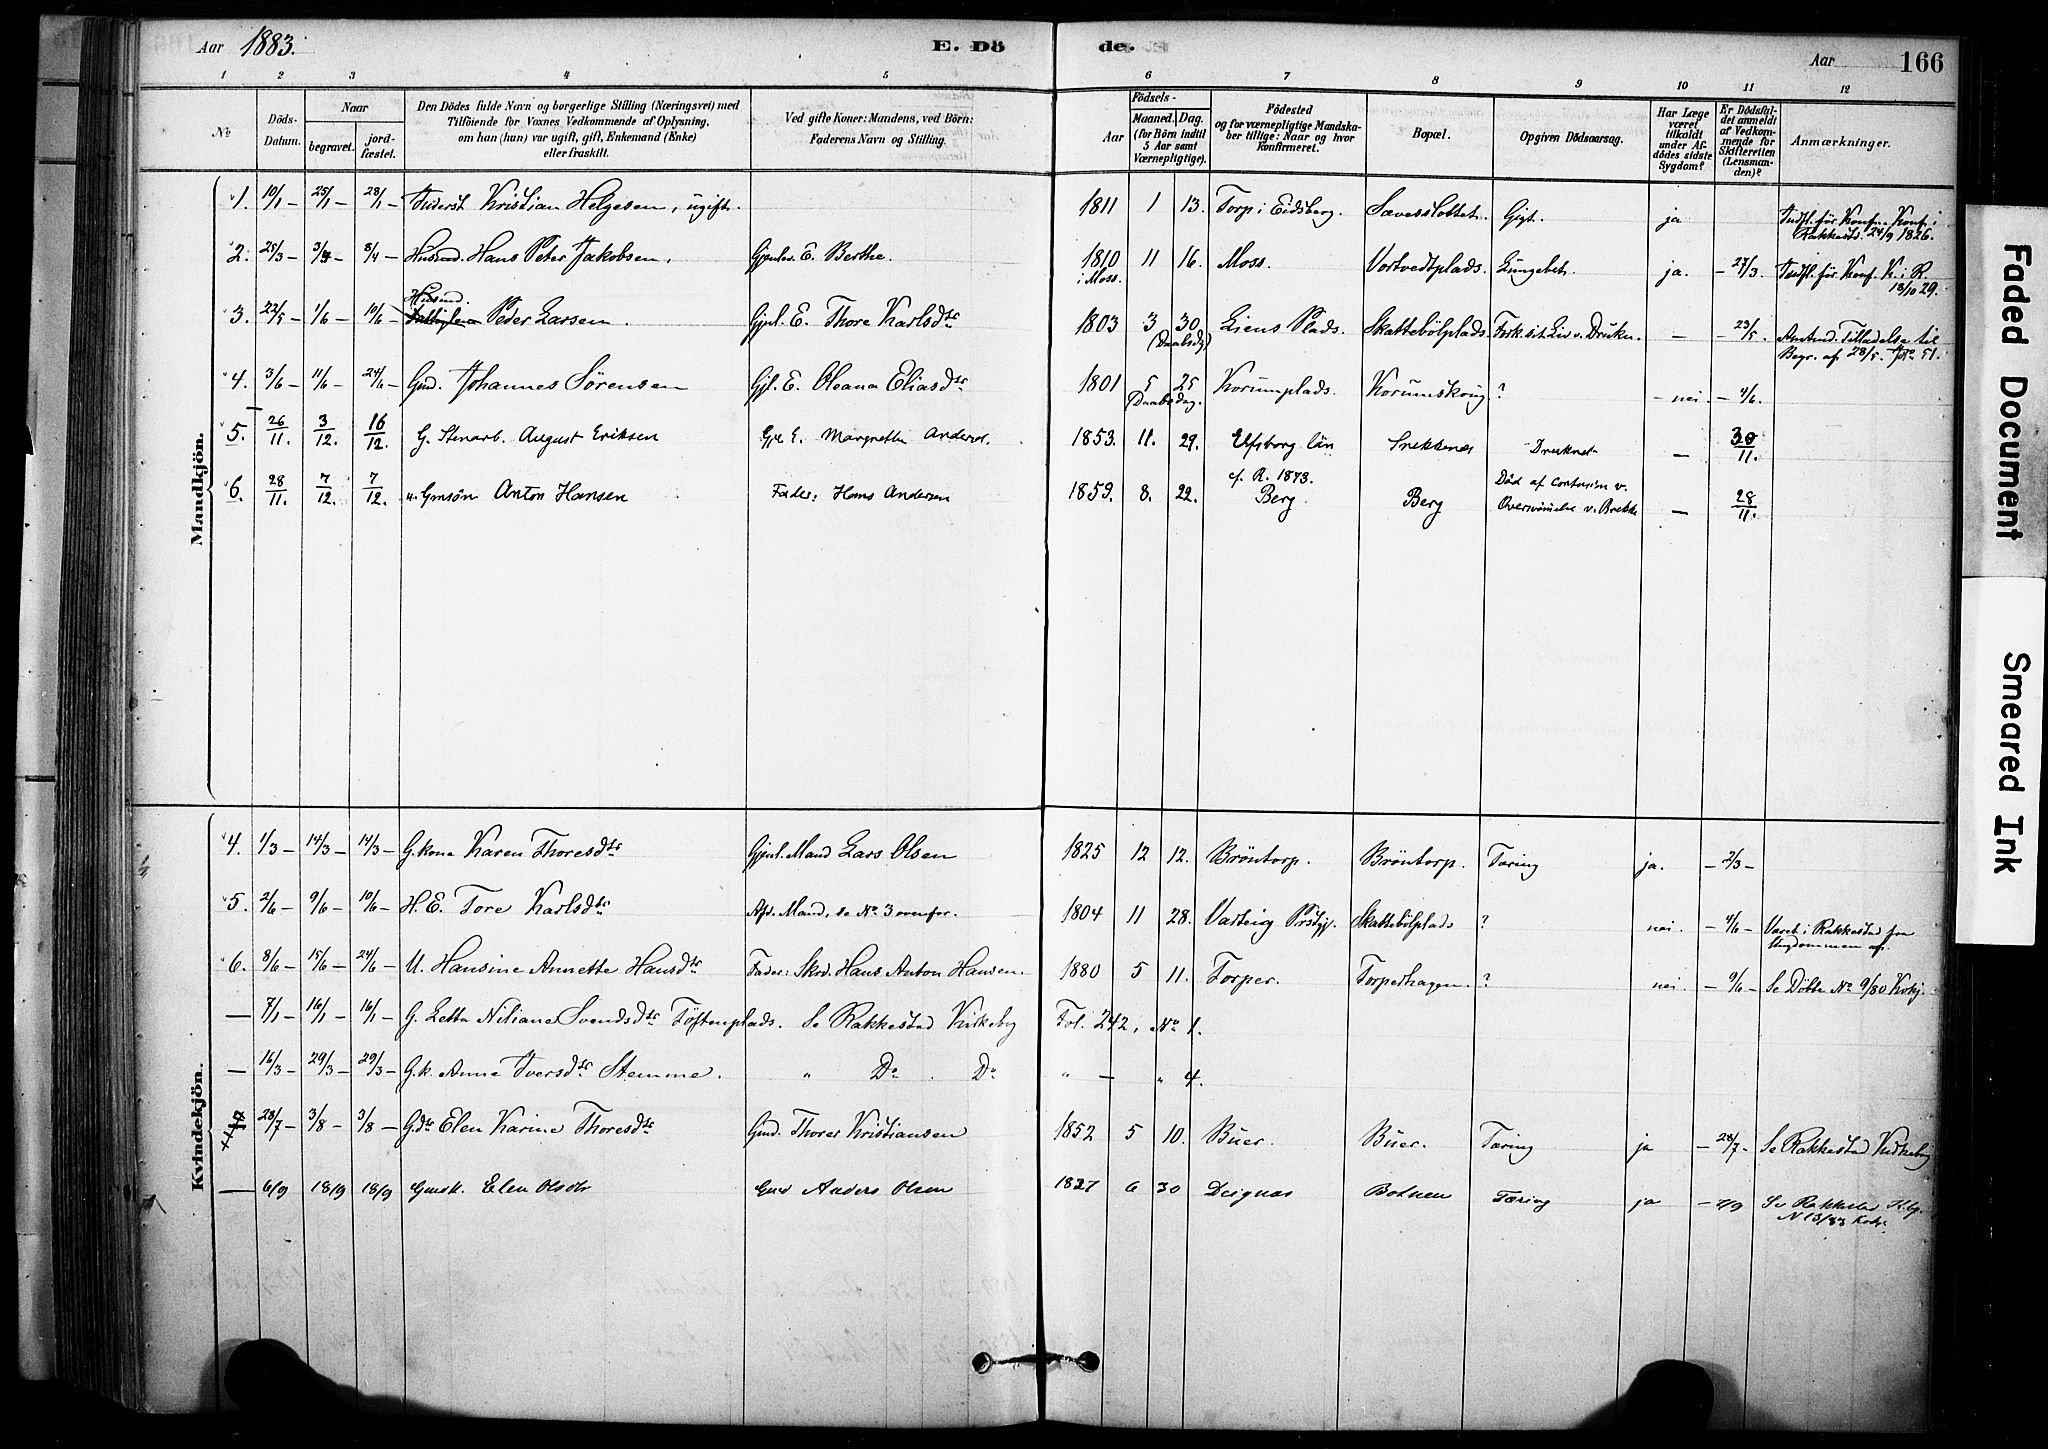 Aar 1883. E. Dö de. Aar 166
1 2 3 4 5 6 7 8 9 10 11 12
No
Döds-Datum.
Naar
begravet.
jord-fæstet.
Den Dödes fulde Navn og borgerlige Stilling (Næringsvei) med
Tilföiende for Voxnes Vedkommende af Oplysning,
om han (hun) var ugift, gift, Enkemand (Enke)
eller fraskilt.
Ved gifte Koner: Mandens, ved Börn:
Faderens Navn og Stilling.
Födsels-
Aar
Maaned. Dag.
(for Börn indtil
5 Aar samt
Værnepligtige).
Födested
og for værnepligtige Mandska-
ber tillige: Naar og hvor
Konfirmeret.
Bopæl.
Opgiven Dödsaarsag.
Har Læge
været
tilkaldt
under Af-
dödes sidste
Sygdom?
Er Dödsfal-
det anmeldt
af Vedkom-
mende for
Skifteretten
(Lensman-
den)?
Anmærkninger.
Mandkjön.
1. 10/1 – 25/1 – 28/1 – Inderst Kristian Helgesen, ugift. 1811 1 13. Torp i Eidsberg. Sævesslottet. Gigt. ja Indfl. för Konf. Konf. i
Rakkestd. 24/9 1826.
2. 25/3 – 3/4 – 8/4 – Husmd. Hans Peter Jakobsen. Gjenlev. E. Berthe. 1810 11 16. Moss. Vortvedtplads. Lungebet. ja. – 27/3. Indfl. för Konf. K. i R.
i Moss. 18/10 29.
Husmd.
3. 22/5 – 1/6 – 10/6 – Peder Larsen. Gjenl. E. Thore Karlsdtr 1803 3 30 Liens Plads. Skattebölplads. Fork. sit Liv v. Drukn. – – 23/5. Amtmd. Tilladelse til
(Daabsdg) Begr. af 28/5. No. 51.
4. 3/6 – 11/6 – 24/6 – Gmd. Johannes Sörensen Gjl. E. Oleana Eliasdtr 1801 5 25 Korumplads. Korumskoug ? – nei. – 4/6.
(Daabsdag.
5. 26/11. 3/12. 16/12 G. Stenarb. August Eriksen Gjl E. Margrethe Andersd. 1853. 11. 29. Elfsborg län Snekkenes Druknet – 30/11.
cf. R. 1873.
6. 28/11. 7/12. 7/12. u. Gmsön Anton Hansen Fader: Hans Andersen 1859. 8. 22. Berg Berg Död af Contusion v.
Overkjörelse v. Brekke – 28/11.
Kvindekjön.
4. 1/3 – 14/3 – 14/3 – G.kone Karen Thoresdtr Gjenl. Mand Lars Olsen 1825 12 12. Bröntorp. Bröntorp. Tæring ja. – 2/3 –
5. 2/6 – 9/6 – 10/6 – H. E. Tore Karlsdtr Afd. Mand, se No. 3 ovenfor. 1804 11 28. Varteig Prstgj. Skattebölplads ? nei. – 4/6 – Været i Rakkestad fra
Ungdommen af.
6. 8/6 – 15/6 – 24/6 – U. Hansine Annette Hansdtr Fader: Skrd. Hans Anton Hansen. 1880 5 11. Torper. Torperhagen. ? nei – 9/6 – Se Döbte No 9/80
– 7/1 – 16/1 – 16/1 – G. Letta Niliane Svendsdtr Töftenplads. Se Rakkestad Kirkebog Fol. 242, No 1.
– 16/3 – 29/3 – 29/3 – G.k. Anne Iversdtr Stemme. " Do . Do " – " 4.
28/7 – 3/8 – 3/8 – Gdtr Elen Karine Thoresdtr Gmd. Thorer Kristiansen 1852 5 10. Buer. Buer. Tæring ja – 28/7 – Se Rakkestad Kirkebog
– 6/9 18/9 18/9 Gmsk. Elen Olsdtr Gmd Anders Olsen 1827 6 30 Deignæs Botnen Tæring ja – 7/9 Se Rakkestad K.bg.
N 13/83
Faded Document
Smeared Ink